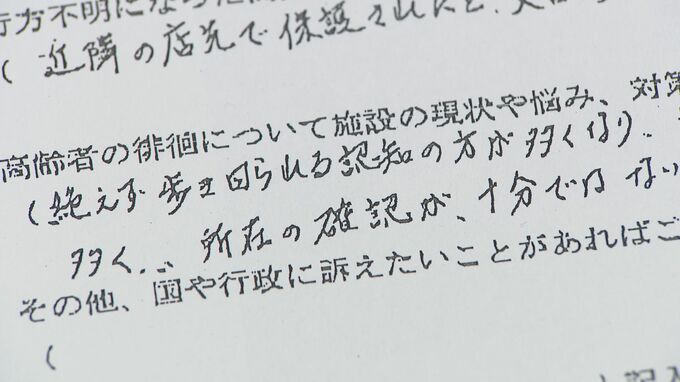 行方不明になった
(近隣の店先で保護されたと、
高齢者の徘徊について施設の現状や悩み、対策
(絶えず歩き回られる認知の方が多くなり、
多く、、所在の確認が、十分ではない
その他、国や行政に訴えたいことがあればご
(
記入